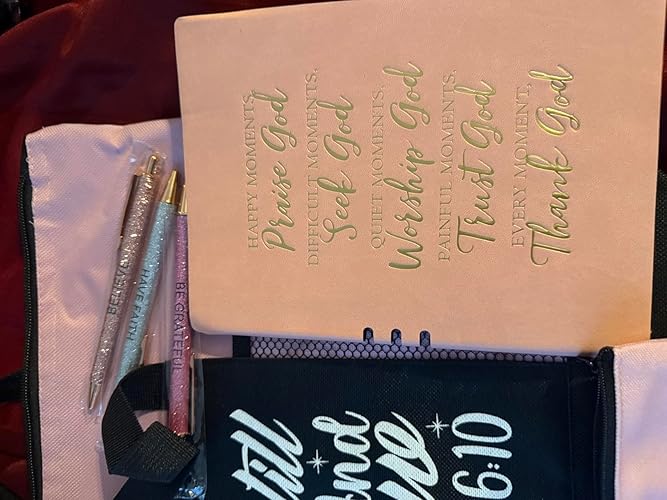 HAPPY MOMENTS,
Praise God
DIFFICULT MOMENTS,
Seek God
QUIET MOMENTS,
Worship God
PAINFUL MOMENTS,
Trust God
EVERY MOMENT,
Thank God
BE BRAVE
HAVE FAITH
BE GRATEFUL
and
6:10